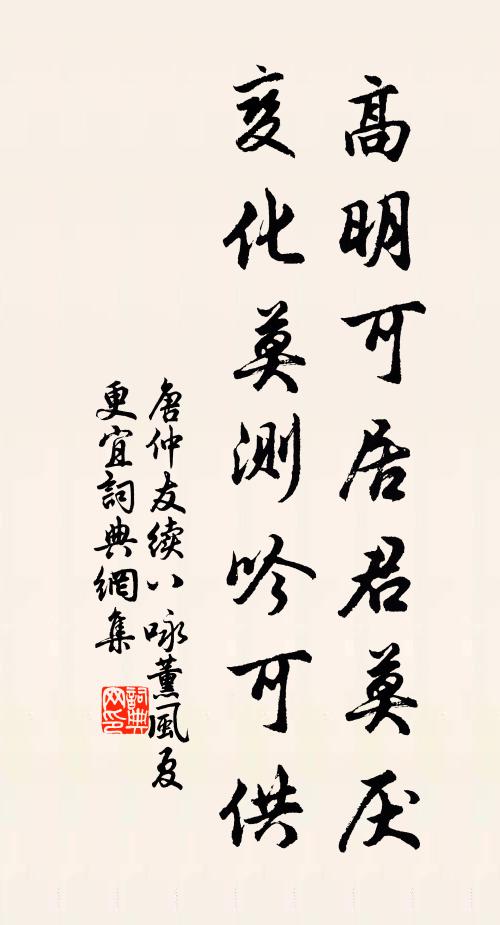 高明可居君莫厌
变化莫测吟可供
唐仲友续八咏薰風夏
更宜詞典網集
詞典网印